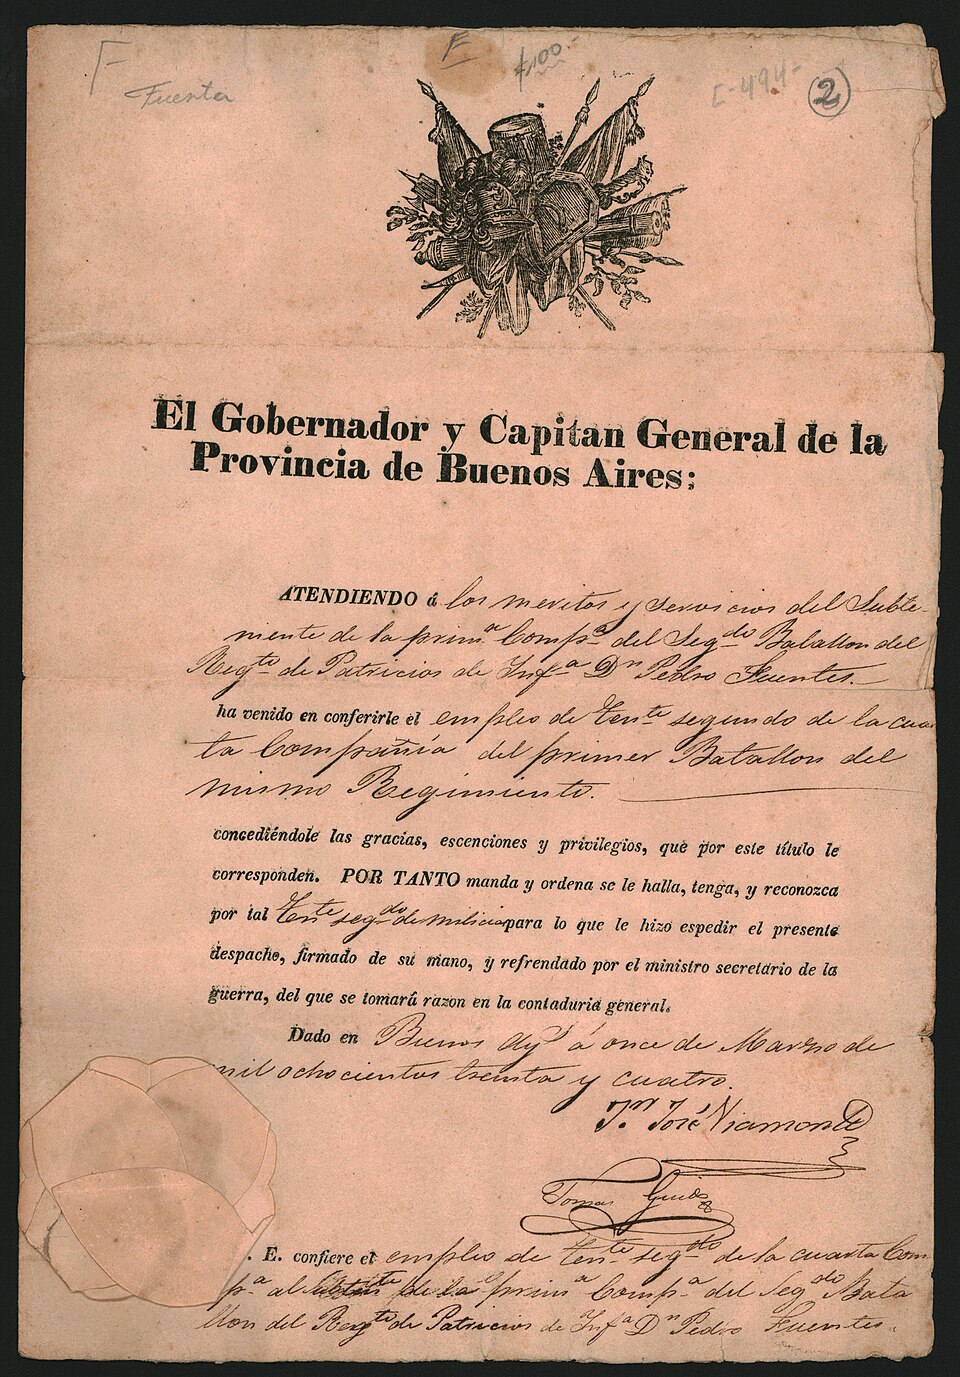 F
E
£100.-
Fuenter
E-494-
2
El Gobernador y Capitan General de la
Provincia de Buenos Aires:
ATENDIENDO á los meritos y servicios del Subte-
niente de la prim.ª Comp.ª del Seg.do Batallon del
Reg.to de Patricios de Inf.ª Dn Pedro Fuentes.
ha venido en conferirle el empleo de Ten.te segundo de la cuar
ta Compañia del primer Batallon del
mismo Regimiento.
concediéndole las gracias, escenciones y privilegios, que por este título le
corresponden. POR TANTO manda y ordena se le halla, tenga, y reconozca
por tal Ten.te seg.do de milicia para lo que le hizo espedir el presente
despacho, firmado de su mano, y refrendado por el ministro secretario de la
guerra, del que se tomará razon en la contaduria general.
Dado en Buenos Ay.s á once de Marzo de
mil ochocientos treinta y cuatro.
Jn. José Viamonte
Tomas Guido
. E. confiere el empleo de Ten.te seg.do de la cuarta Com
p.ª al Subte.te de la prim.ª Comp.ª del Seg.do Bata
llon del Reg.to de Patricios de Inf.ª Dn Pedro Fuentes.